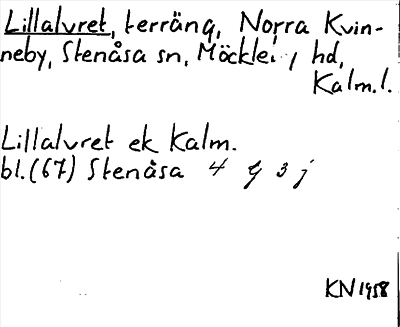 Lillalvret, terräng, Norra Kvin-
neby, Stenåsa sn, Möckle , hd,
Kalm.l.
Lillalvret ek Kalm.
bl.(67) Stenåsa 4 G 3 j
KN 1958